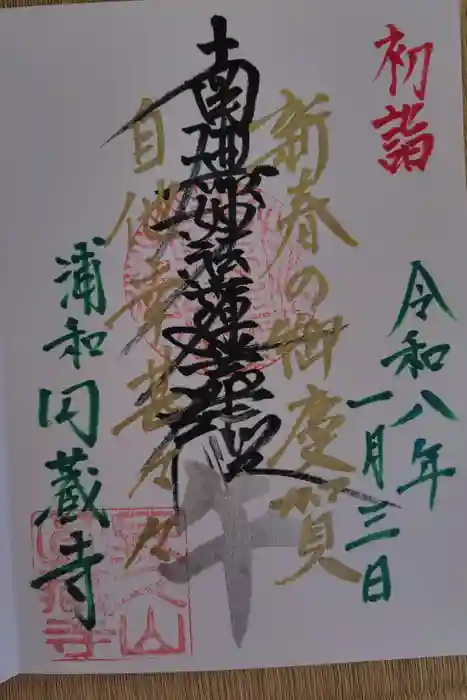 初詣
令和八年
一月三日
新春の御慶賀
南無妙法蓮華経
自他幸甚々々
午
浦和円蔵寺